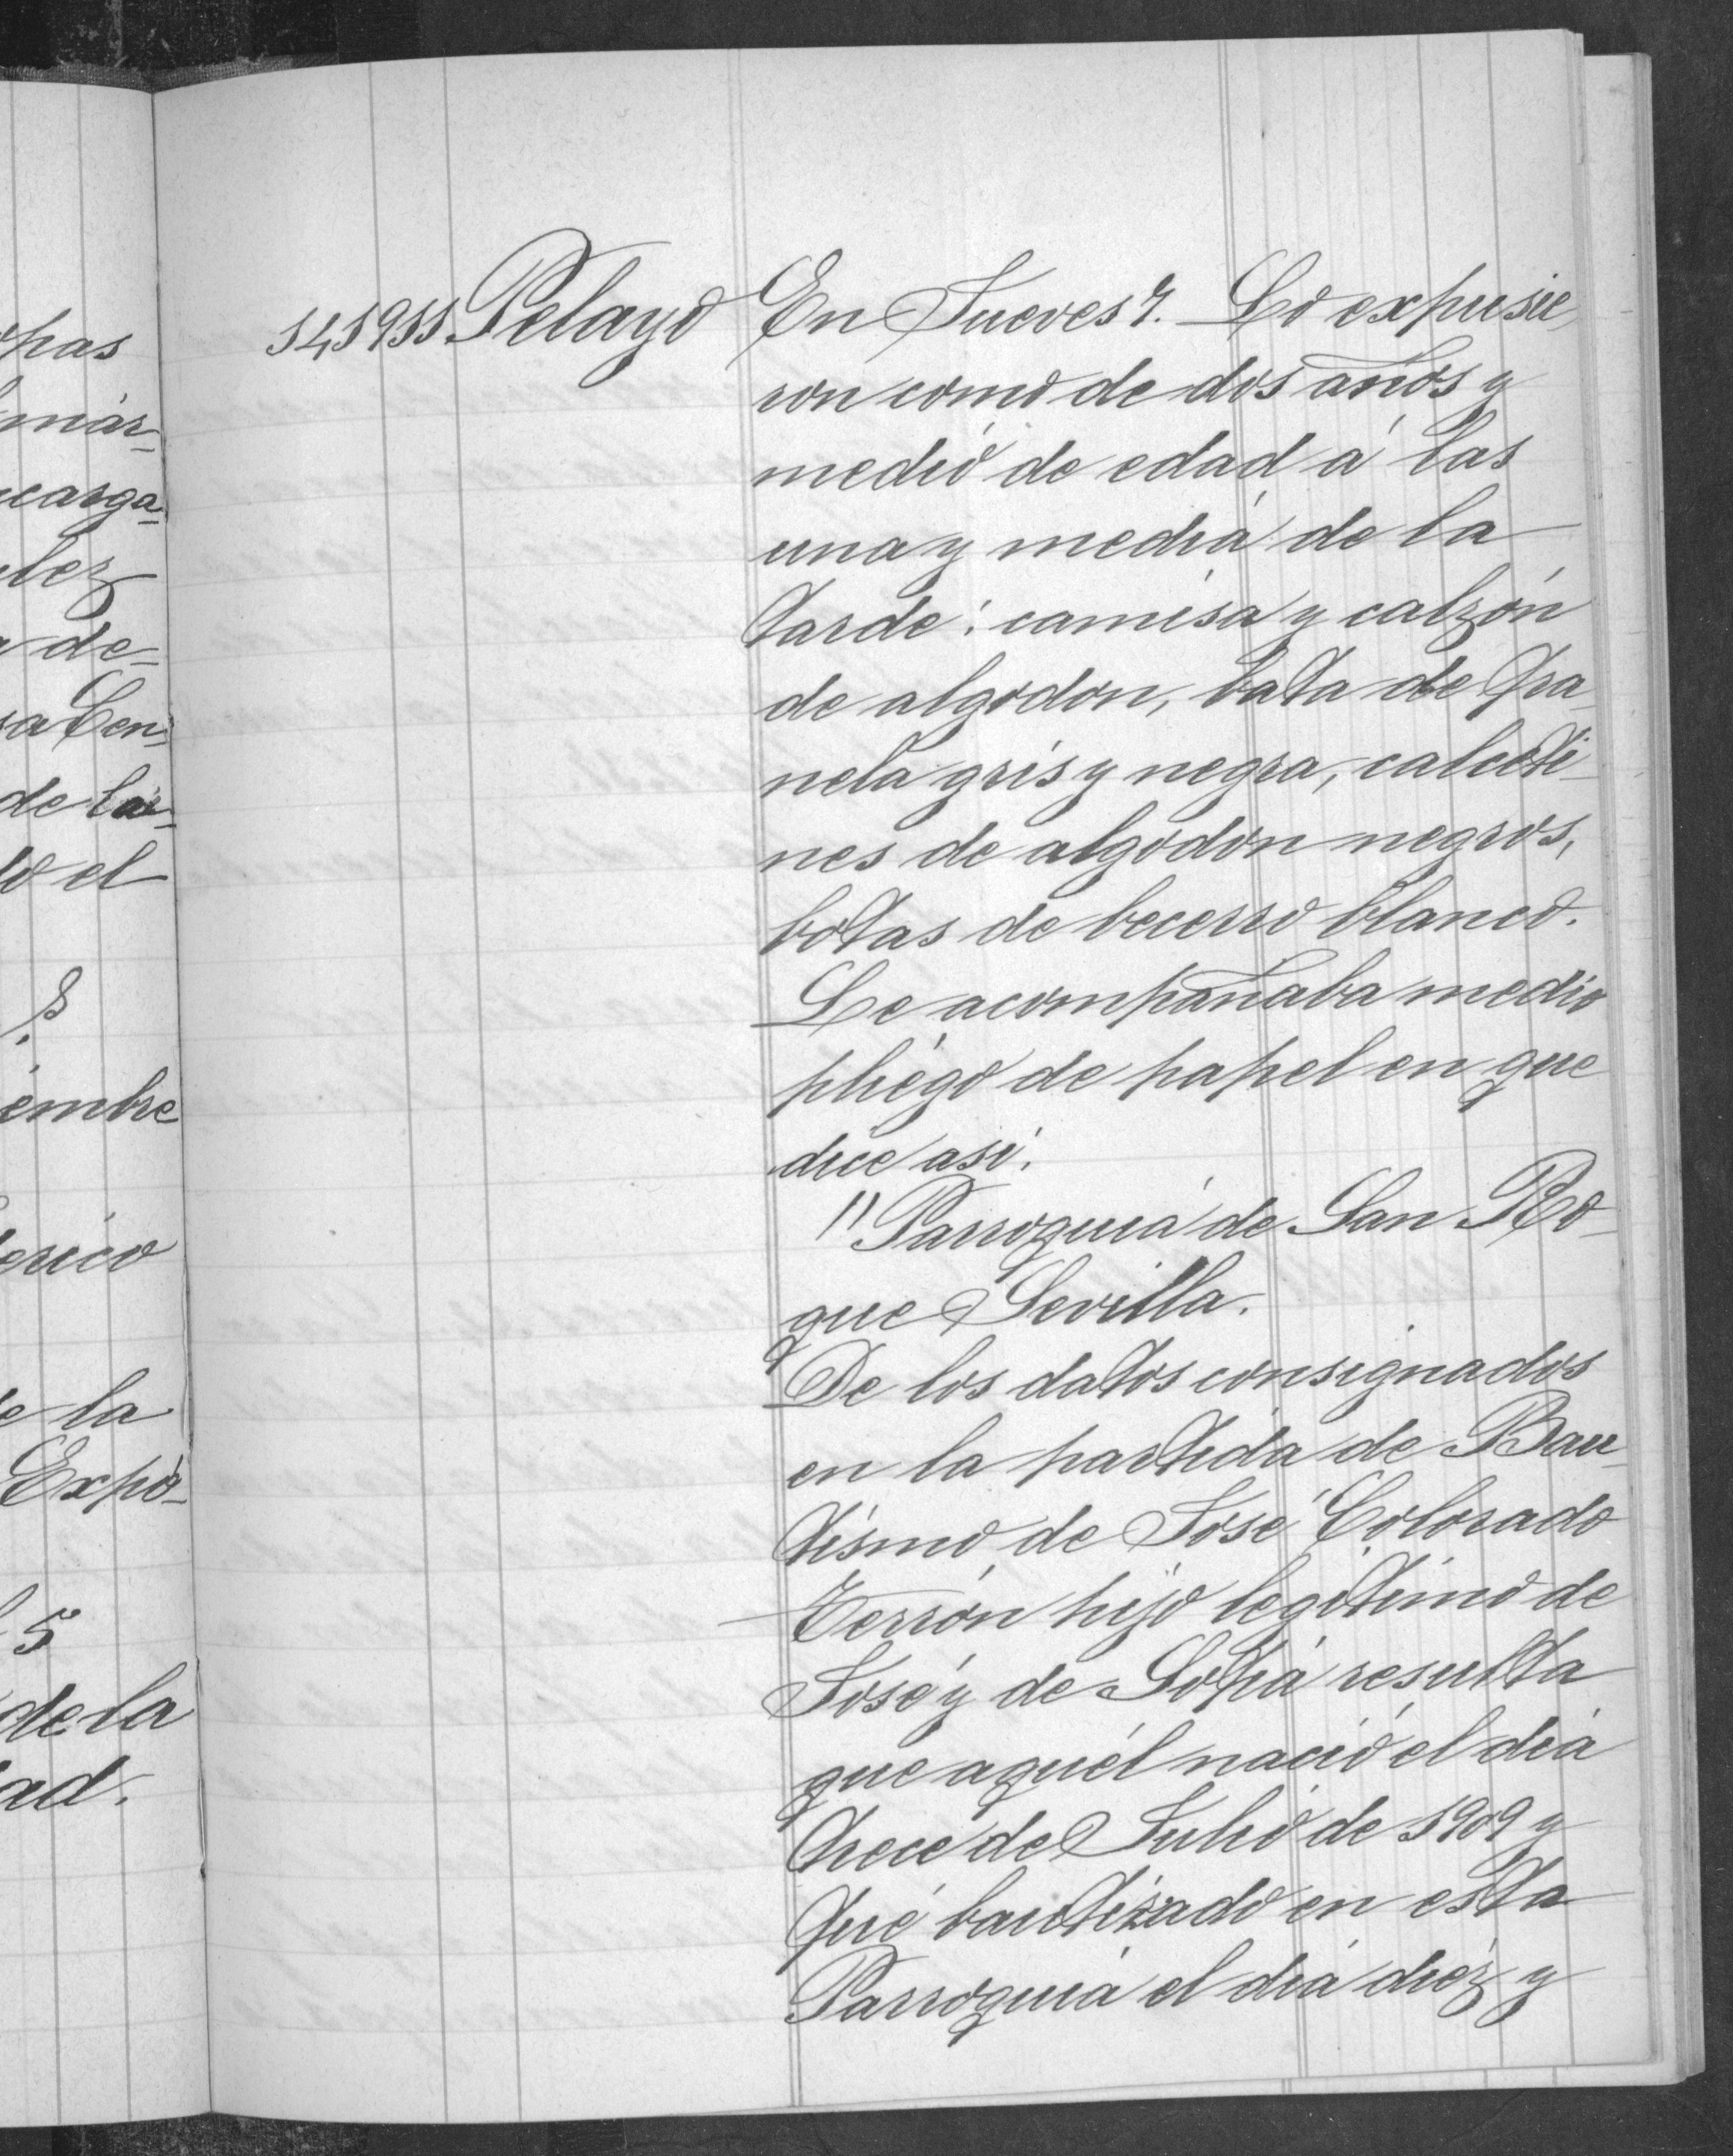 pas
már-
carga-
lez
de-
ra Cen-
de la
lo el
8.
iembre
erico
e la
Expó-
5
de la
ad.
141911 Pelayo En Jueves 7. Lo expusie-
ron como de dos años y
medio de edad á las
una y media de la
tarde: camisa y calzón
de algodon, bata de fra-
nela gris y negra, calceti-
nes de algodon negros,
botas de becerro blanco.
Le acompañaba medio
pliego de papel en que
dice asi:
"Parroquia de San Ro-
que Sevilla.
De los datos consignados
en la partida de Bau-
tismo de José Colorado
Terrón hijo legitimo de
José y de Sofia resulta
que aquél nació el dia
trece de Julio de 1909 y
fué bautizado en esta
Parroquia el dia diez y